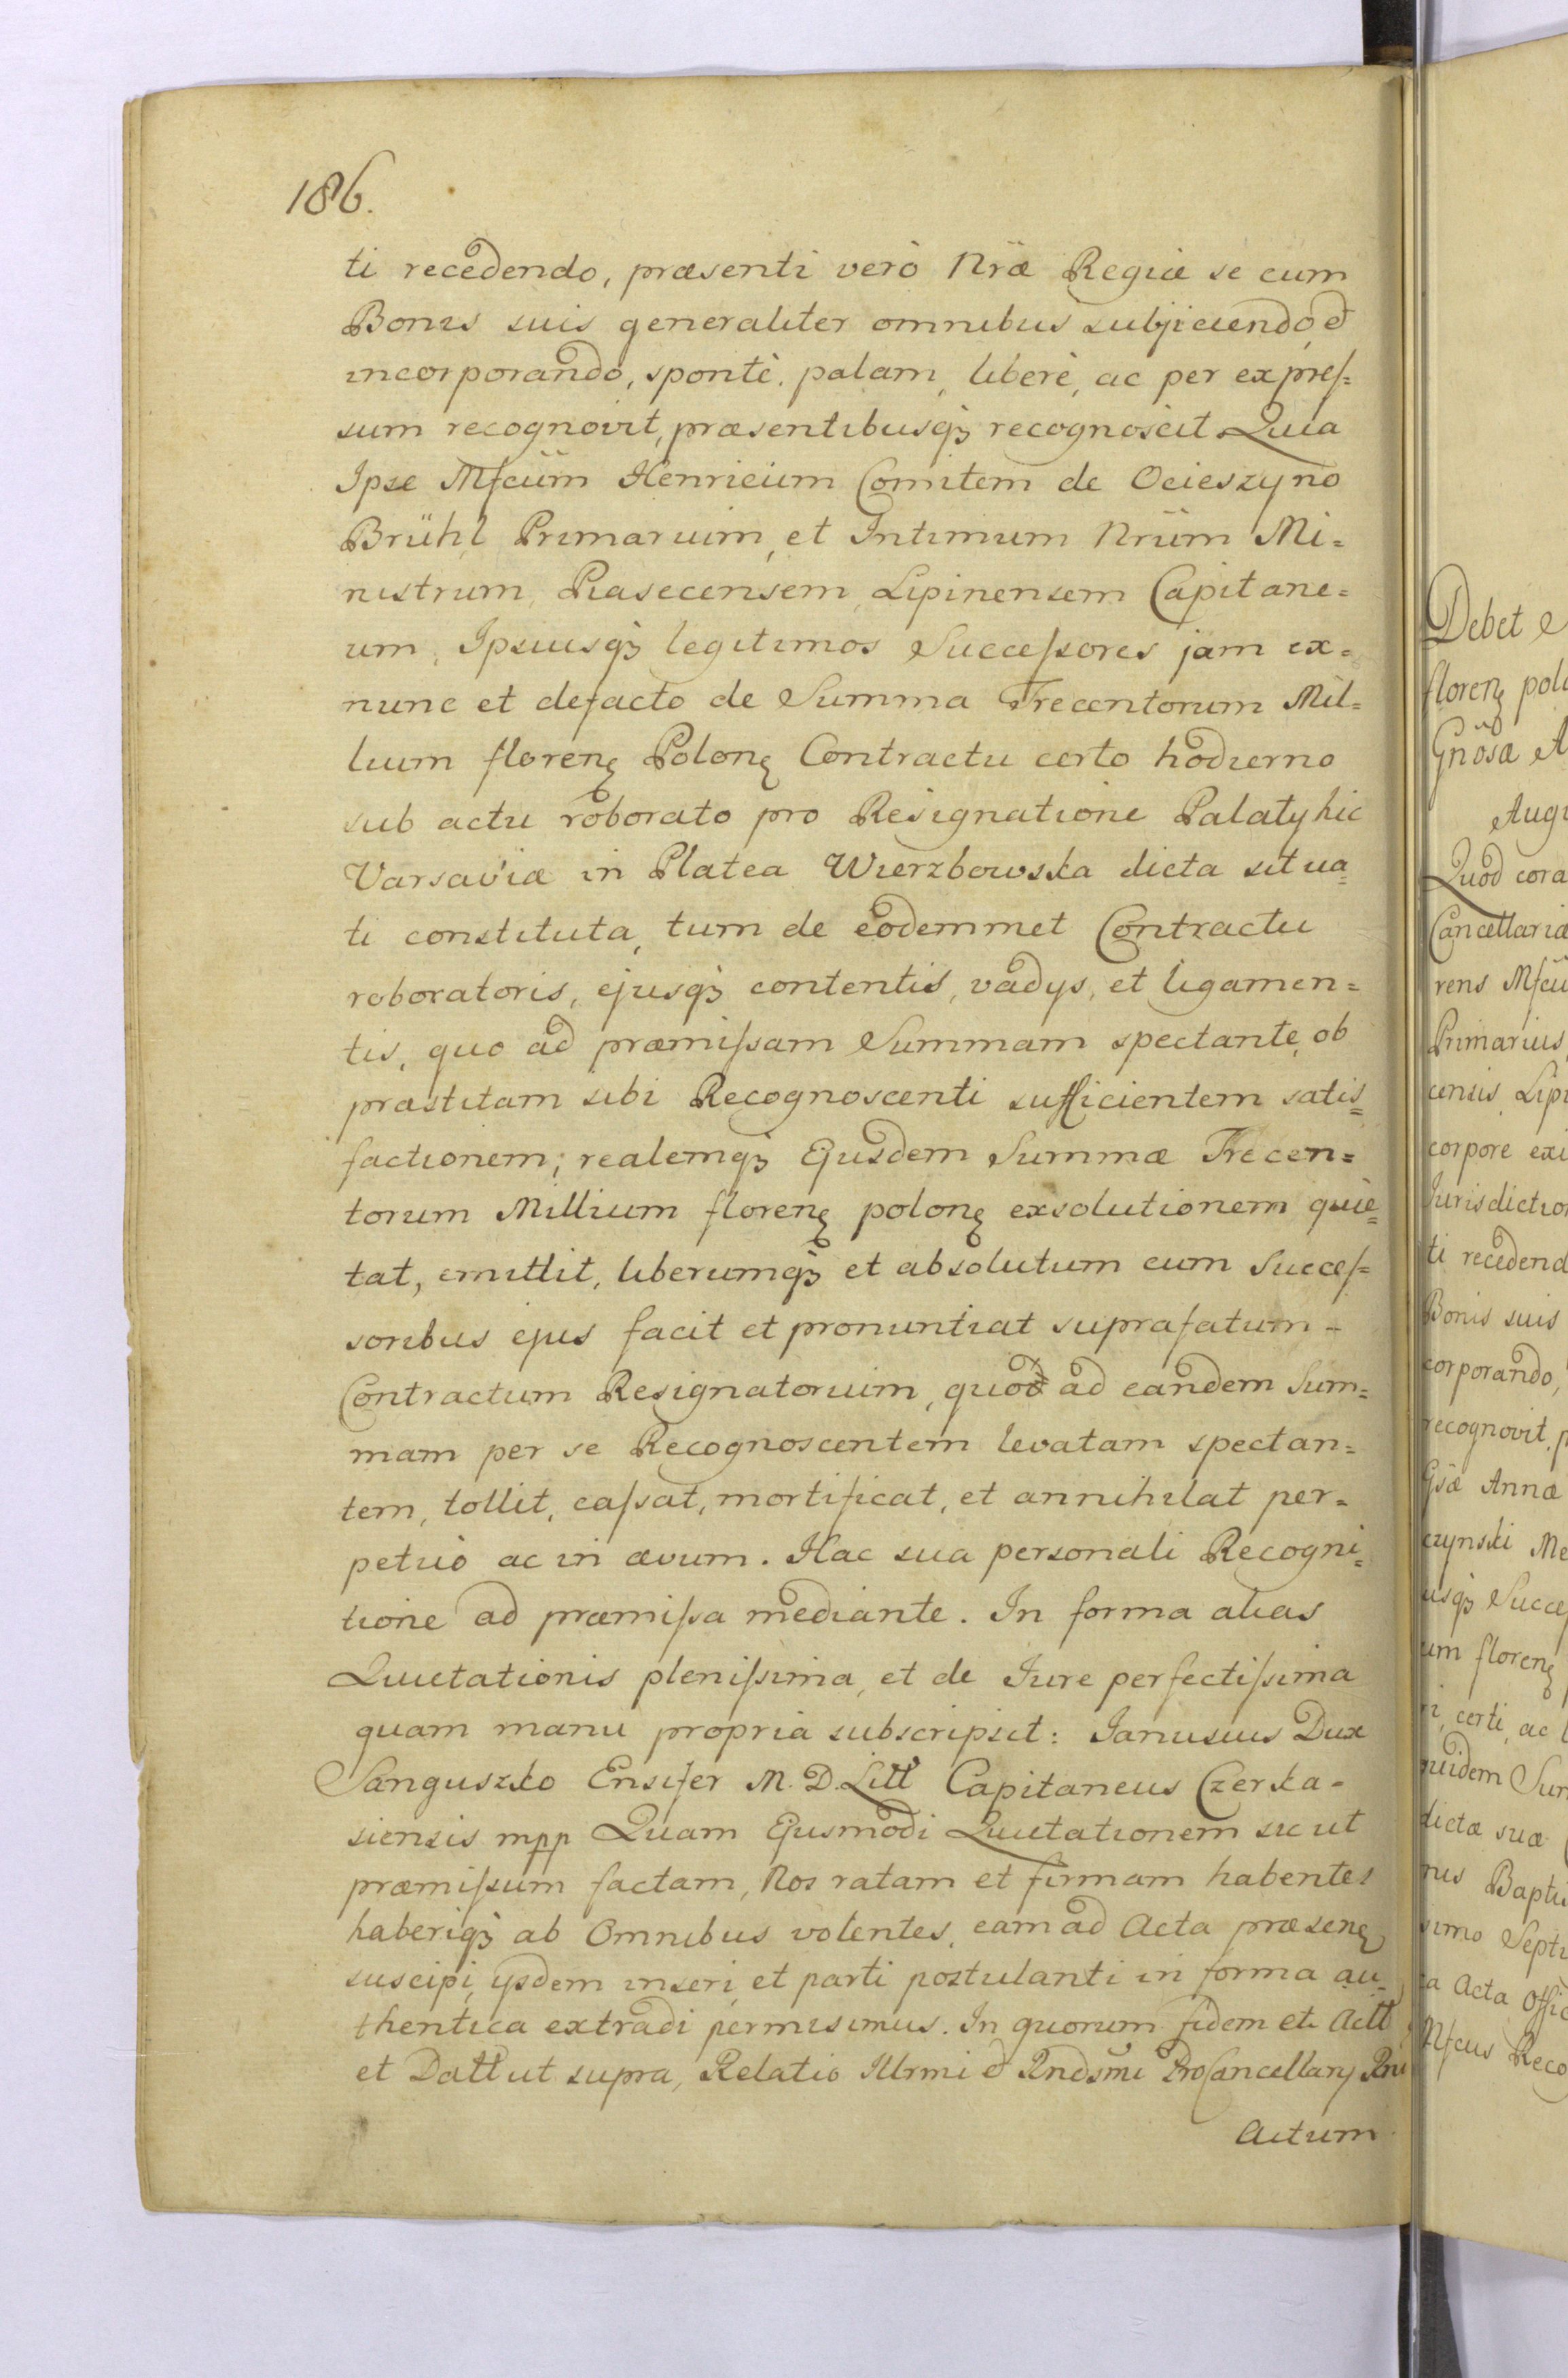 186.
ti recedendo, præsenti verò Nr̃æ Regiæ se cum
Bonis suis generaliter omnibus subjiciendo, et
incorporando, spontè, palam, liberè, ac per expreſ=
sum recognovit, præsentibusqꝫ recognoscit Quia
Ipse Mfcũm Henricum Comitem de Ocieszyno
Brühl Primarium, et Intimum Nrũm Mi=
nistrum, Piasecensem, Lipinensem Capitane=
um, Ipsiusqꝫ legitimos Succeſsores jam ex=
nunc et defacto de Summa Trecentorum Mil=
lium florenꝫ Polonꝫ Contractu certo hodierno
sub actu roborato pro Resignatione Palatij hic
Varsaviæ in Platea Wierzbowska dicta situa=
ti constituta, tum de eodemmet Contractu
roboratoris, ejusqꝫ contentis, vadys, et ligamen=
tis, quo ad præmiſsam Summam spectante, ob
præstitam sibi Recognoscenti sufficientem satis=
factionem; realemqꝫ Ejusdem Summæ Trecen=
torum Millium florenꝫ polonꝫ exsolutionem quie=
tat, emittit, liberumqꝫ et absolutum cum Succeſ=
soribus ejus facit et pronuntiat suprafatum=
Contractum Resignatorium, quod ad eandem Sum=
mam per se Recognoscentem levatam spectan=
tem, tollit, caſsat, mortificat, et annihilat per=
petuò ac in ævum. Hac sua personali Recogni=
tione ad præmiſsa mediante. In forma alias
Quietationis pleniſsima, et de Iure perfectiſsima
quam manu propria subscripsit: Ianusius Dux
Sanguszko Ensifer M. D. Litt Capitaneus Czerka=
siensis mpp Quam Ejusmodi Quietationem sic ut
præmiſsum factam, Nos ratam et firmam habentes
haberiqꝫ ab Omnibus volentes, eam ad Acta præsenꝫ
suscipi, ijsdem inseri, et parti postulanti in forma au=
thentica extradi permisimus. In quorum fidem etc Actt
et Datt ut supra, Relatio Illrmi et Rndsmi ProCancellary Rni
Actum
Debet e
florenꝫ polo
Gnosæ A
Augu
Quod cora
Cancellariæ
rens Mfcu
Primarius,
censis Lipi
corpore exi
Iurisdiction
ti recedend
Bonis suis
corporando,
recognovit, p
Gsæ Annæ
czynski Me
usqꝫ Succeſ
um florenꝫ
ri, certi, ac l
quidem Sum
dictæ suæ
nis Baptis
simo Septi
ta Acta Offic
Mfcus Reco